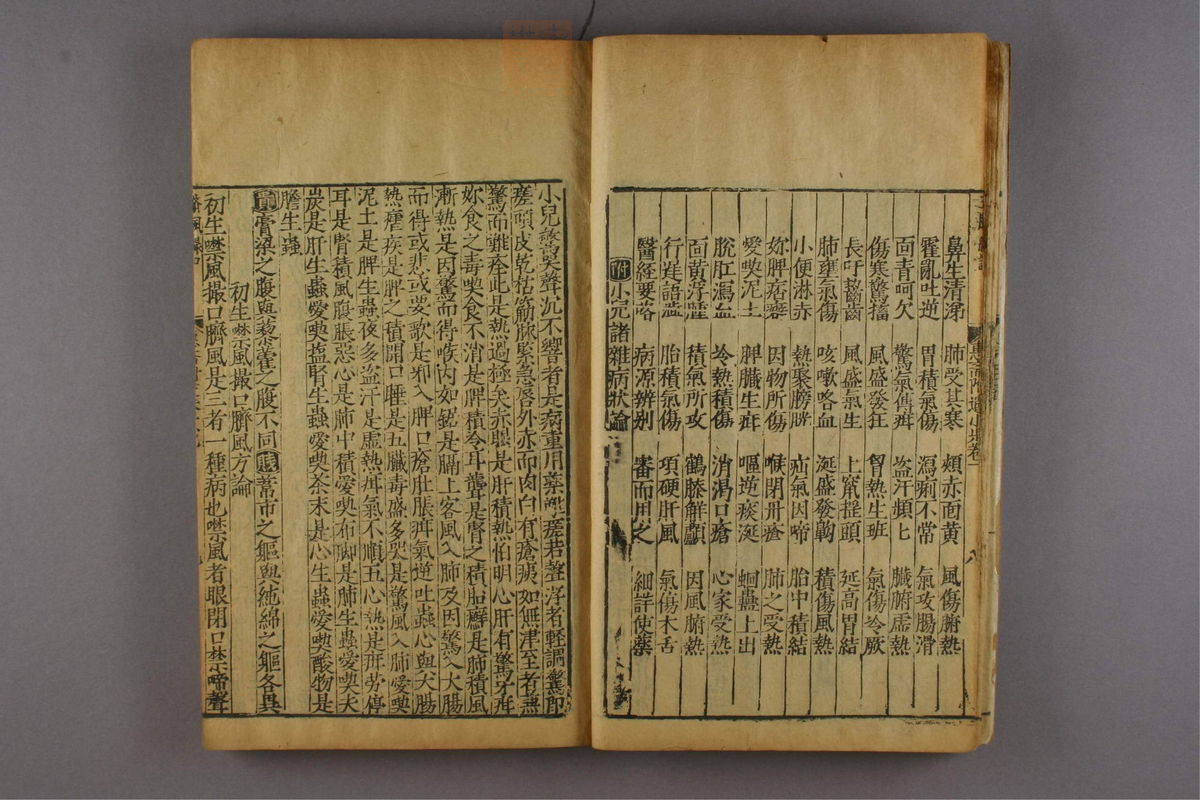 鼻生清涕　肺受其寒　頰赤面黃　風傷腑熱
霍亂吐逆　胃積氣傷　瀉痢不常　氣攻腸滑
面青呵欠　驚氣傳疳　盜汗頻七　臟腑虛熱
傷寒驚搐　風盛發狂　胃熱生班　氣傷冷厥
長吁齧齒　風盛氣生　上竄揺頭　延高胃結
肺壅氣傷　咳嗽咯血　涎盛發齁　積傷風熱
小便淋赤　熱聚膀胱　疝氣因啼　胎中積結
妳脾痞癖　因物所傷　喉閉丹瘡　肺之受熱
愛喫泥土　脾臟生疳　嘔逆痰涎　蛔蟲上出
脫肛瀉血　冷熱積傷　消渴口瘡　心家受熱
面黃浮腫　積氣所攻　鶴膝解顱　因風腑熱
行遲語澁　胎積氣傷　項硬肝風　氣傷木舌
醫經要略　病源辨別　審而用之　細詳使藥
附小兒諸雜病狀論
小兒驚哭聲沉不響者是病重用藥
瘥頭皮乾枯筋脉緊急唇外赤而肉白有瘡痍如無津至者無
驚而難痊此是熱過極矣赤眼是肝積熱怕明心肝有驚牙疳
妳食之毒喫食不消是脾積冷耳聾是腎之積胎癬是肺積風
漸熱是因驚而得喉内如鋸是膈上客風入肺及因驚入大腸
而得或悲或要歌是邪入脾口瘡肚脹疳氣逆吐蟲心與大腸
熱瘧疾是脾之積開口睡是五臟毒盛多哭是驚風入肺愛喫
泥土是脾生蟲夜多盜汗是虛熱疳氣不順五心熱是疳勞停
耳是腎積風腹脹惡心是肺中積愛喫布脚是肺生蟲愛喫大
炭是肝生蟲愛喫鹽腎生蟲愛喫茶末是心生蟲愛喫酸物是
膽生蟲
膏粱之腹與藜藿之腹不同賤蓄市之軀與純綿之軀各異
初生噤風撮口臍風方論
初生噤風撮口臍風是三者一種病也噤風者眼閉口噤啼聲